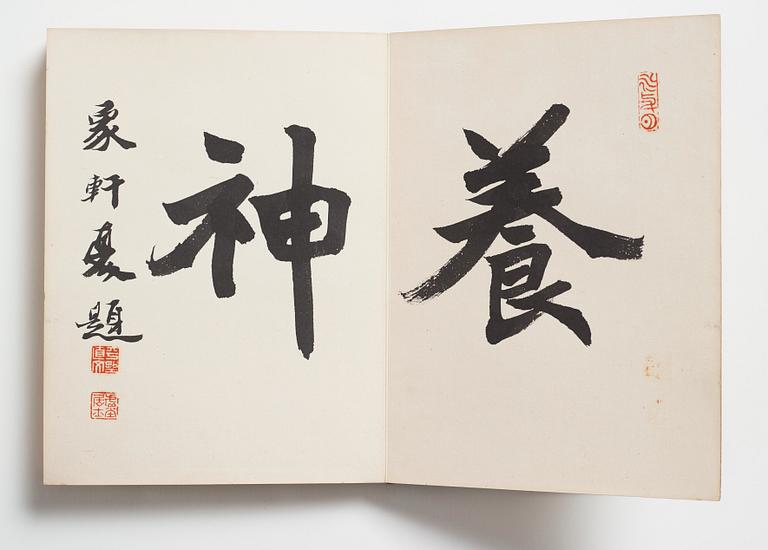 養
神
象軒夏題